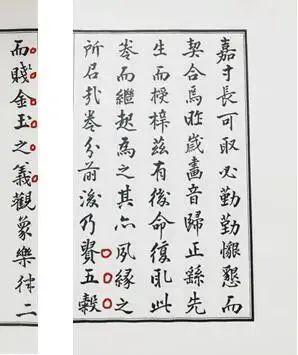 嘉寸長可取必勤勤懇懇而
契合焉昨歲畫音歸正繇先
生而授梓茲有後命復此
卷而繼起為之其亦夙緣之
所召哉卷分前後乃貴五穀
而賤金玉之義觀象樂律二